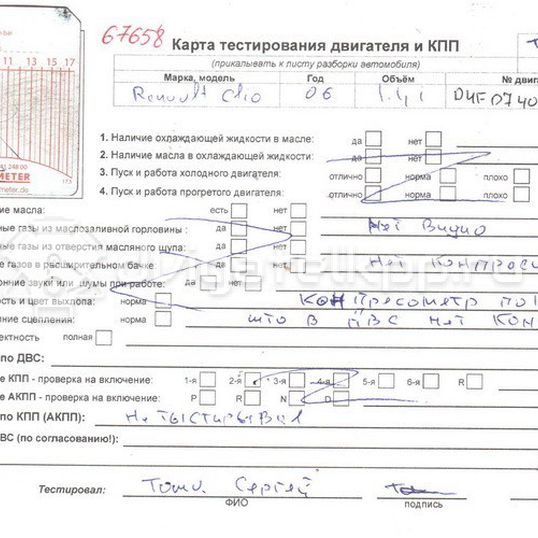 67658 Карта тестирования двигателя и КПП
(прикалывать к листу разборки автомобиля)
Марка, модель Год Объём № двига
Renault Clio 06 1.4i D4FD740
11 13 15 17
METER
meter.de
1. Наличие охлаждающей жидкости в масле: да нет
2. Наличие масла в охлаждающей жидкости: да нет
3. Пуск и работа холодного двигателя: отлично норма плохо
4. Пуск и работа прогретого двигателя: отлично норма плохо
ие масла: есть нет
ные газы из маслозаливной горловины : да нет Нет Видио
ные газы из отверстия масляного щупа: да нет
е газов в расширительном бачке: да нет нет
онние звуки или шумы при работе: да нет
ость и цвет выхлопа: норма Компресометр по
ние сцепления: нет што в ДВС нет Ком
ектность полная
по ДВС:
е КПП - проверка на включение: 1-я 2-я 3-я 4-я 5-я 6-я R
е АКПП - проверка на включение: P R N D
по КПП (АКПП): Не тыстирывал
ВС (по согласованию!):
Тестировал: Сергей
ФИО подпись